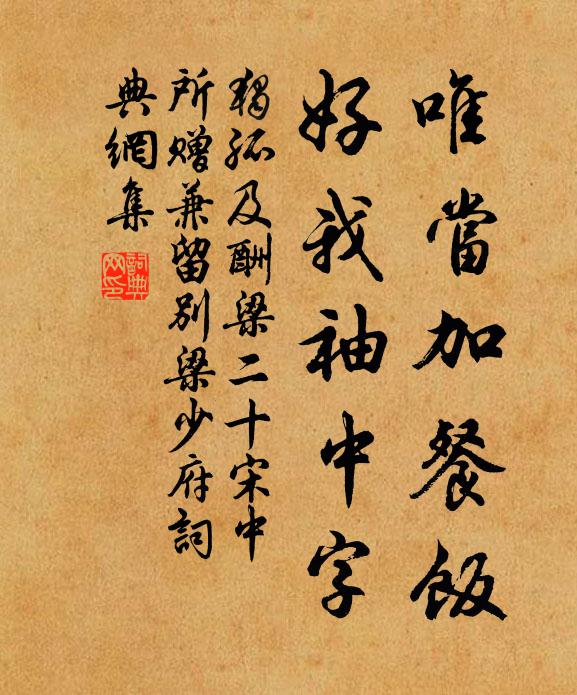 唯當加餐飯
好我袖中字
獨孤及酬梁二十宋中
所贈兼留別梁少府詞
典網集
詞典
网印